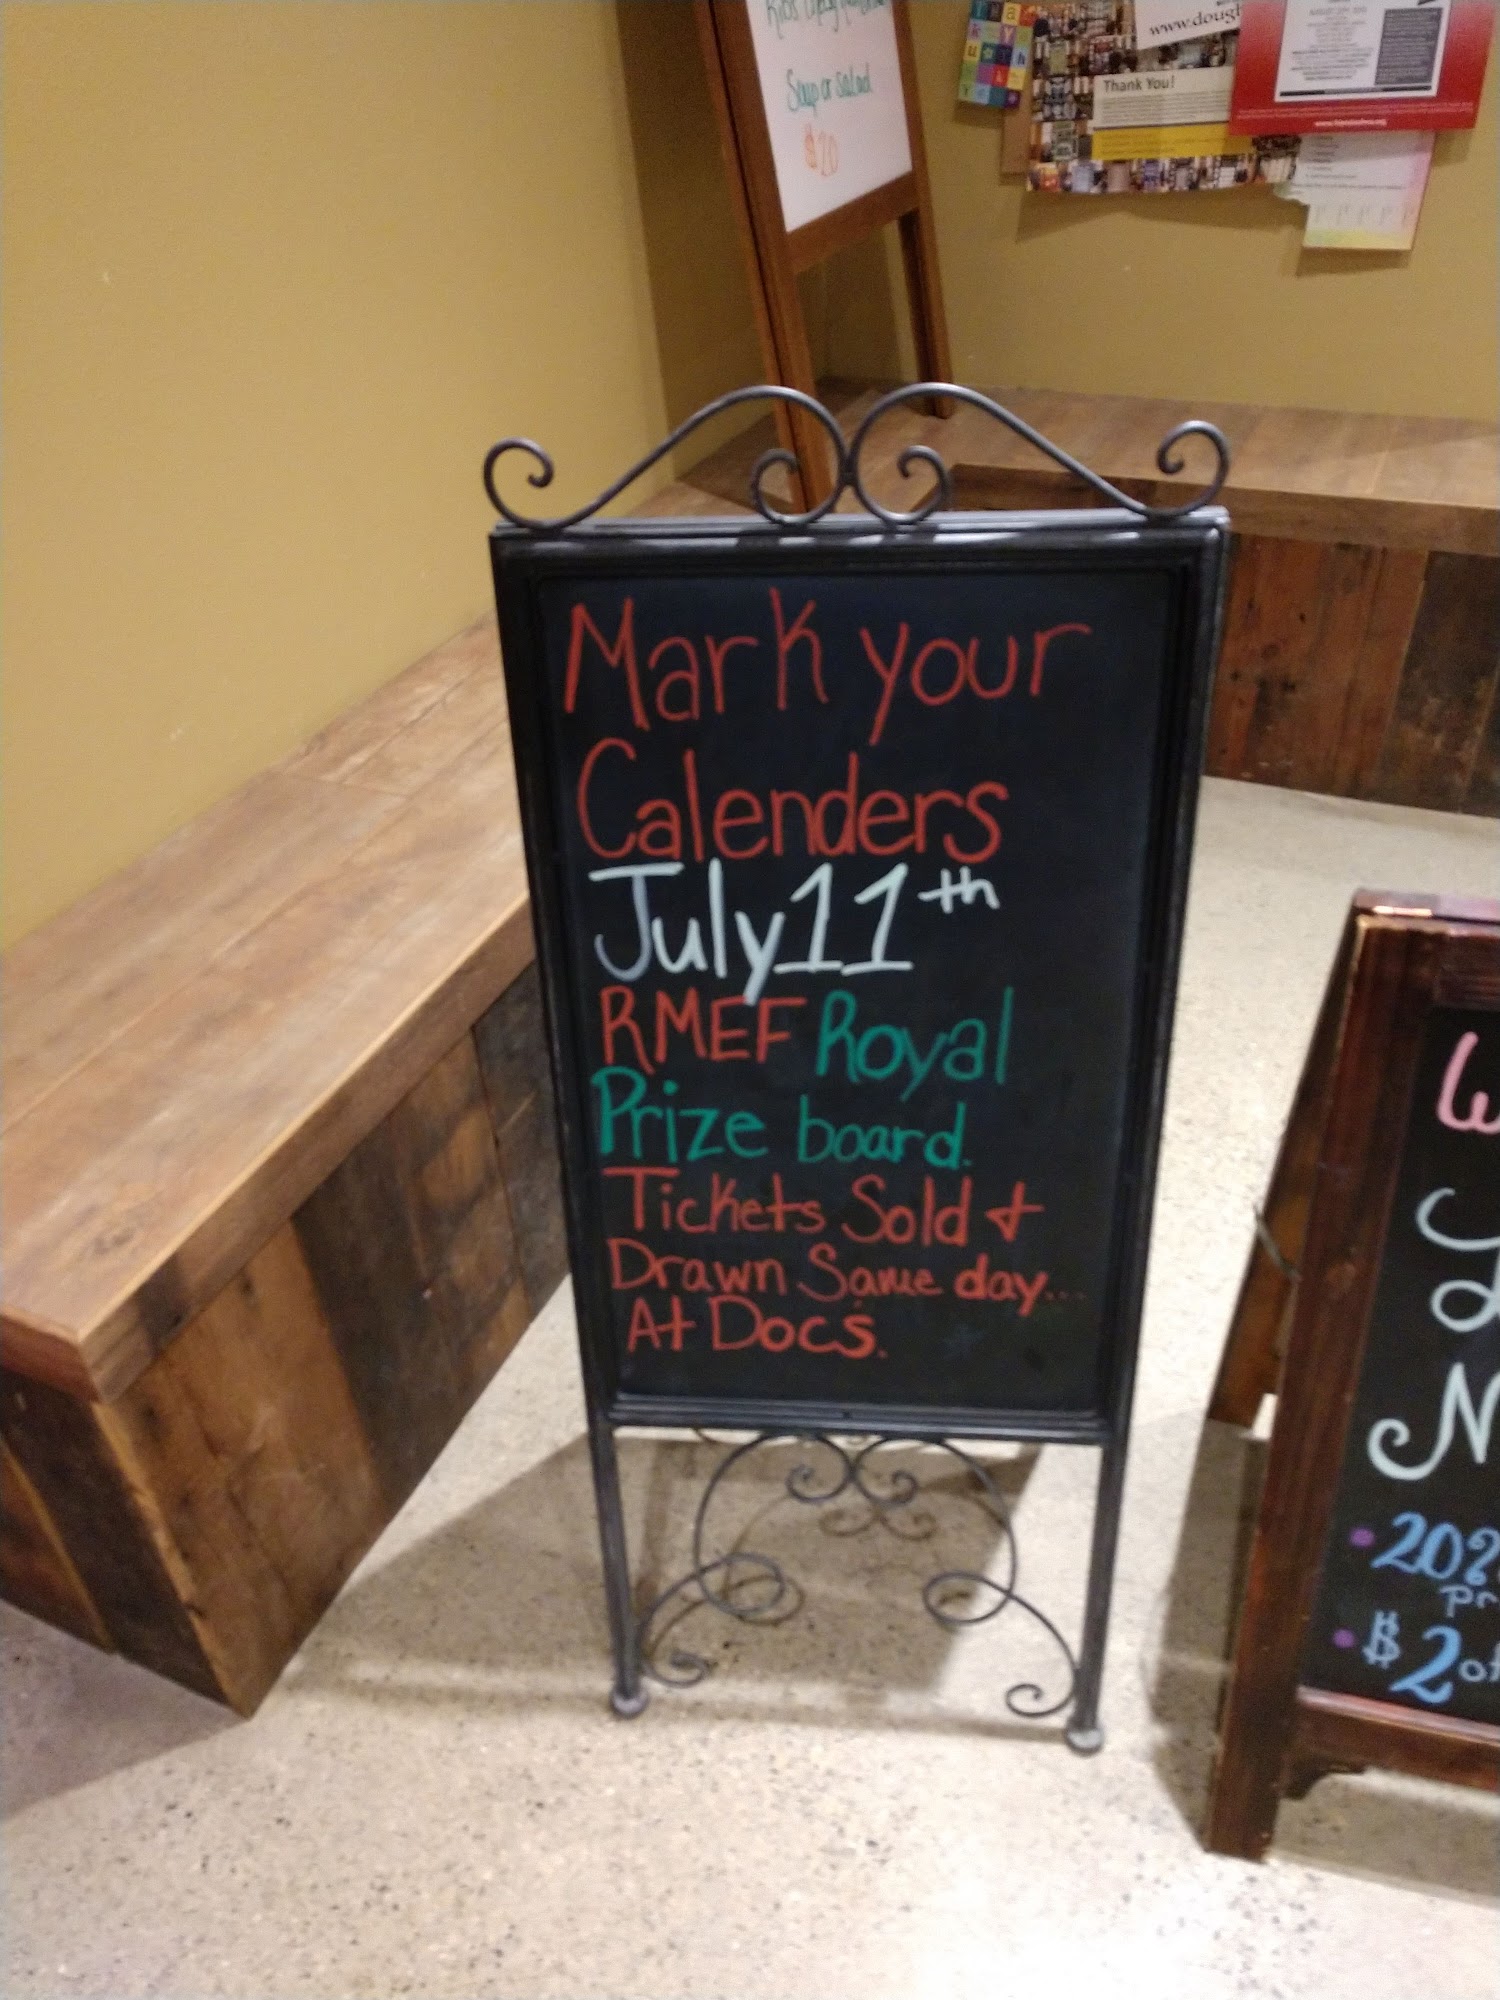 Soup or salad
$20
www.dough
Thank You!
Mark your
Calenders
July 11th
RMEF Royal
Prize board.
Tickets Sold &
Drawn Same day...
At Docs.
20%
pr
$2 of